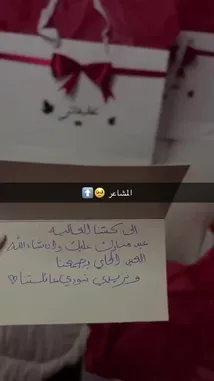 المشاعر 🥹⬆️
الى كنتنا الغالية
عيد مبارك عليك وان شاء الله
العيد الجاي يجمعنا
و تزيدي تنوري عايلتنا ♡